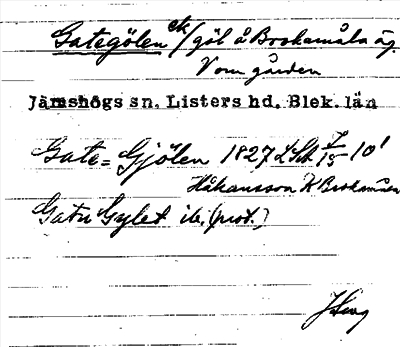 Gategölen ek/göl å Brokamåla äg.
V om gården
Jämshögs sn. Listers hd. Blek. län
Gate=Gjölen 1827 LSkt 7/15 10'
Håkansson K Brokamåla
Gatu Gylet ib. (prot.)